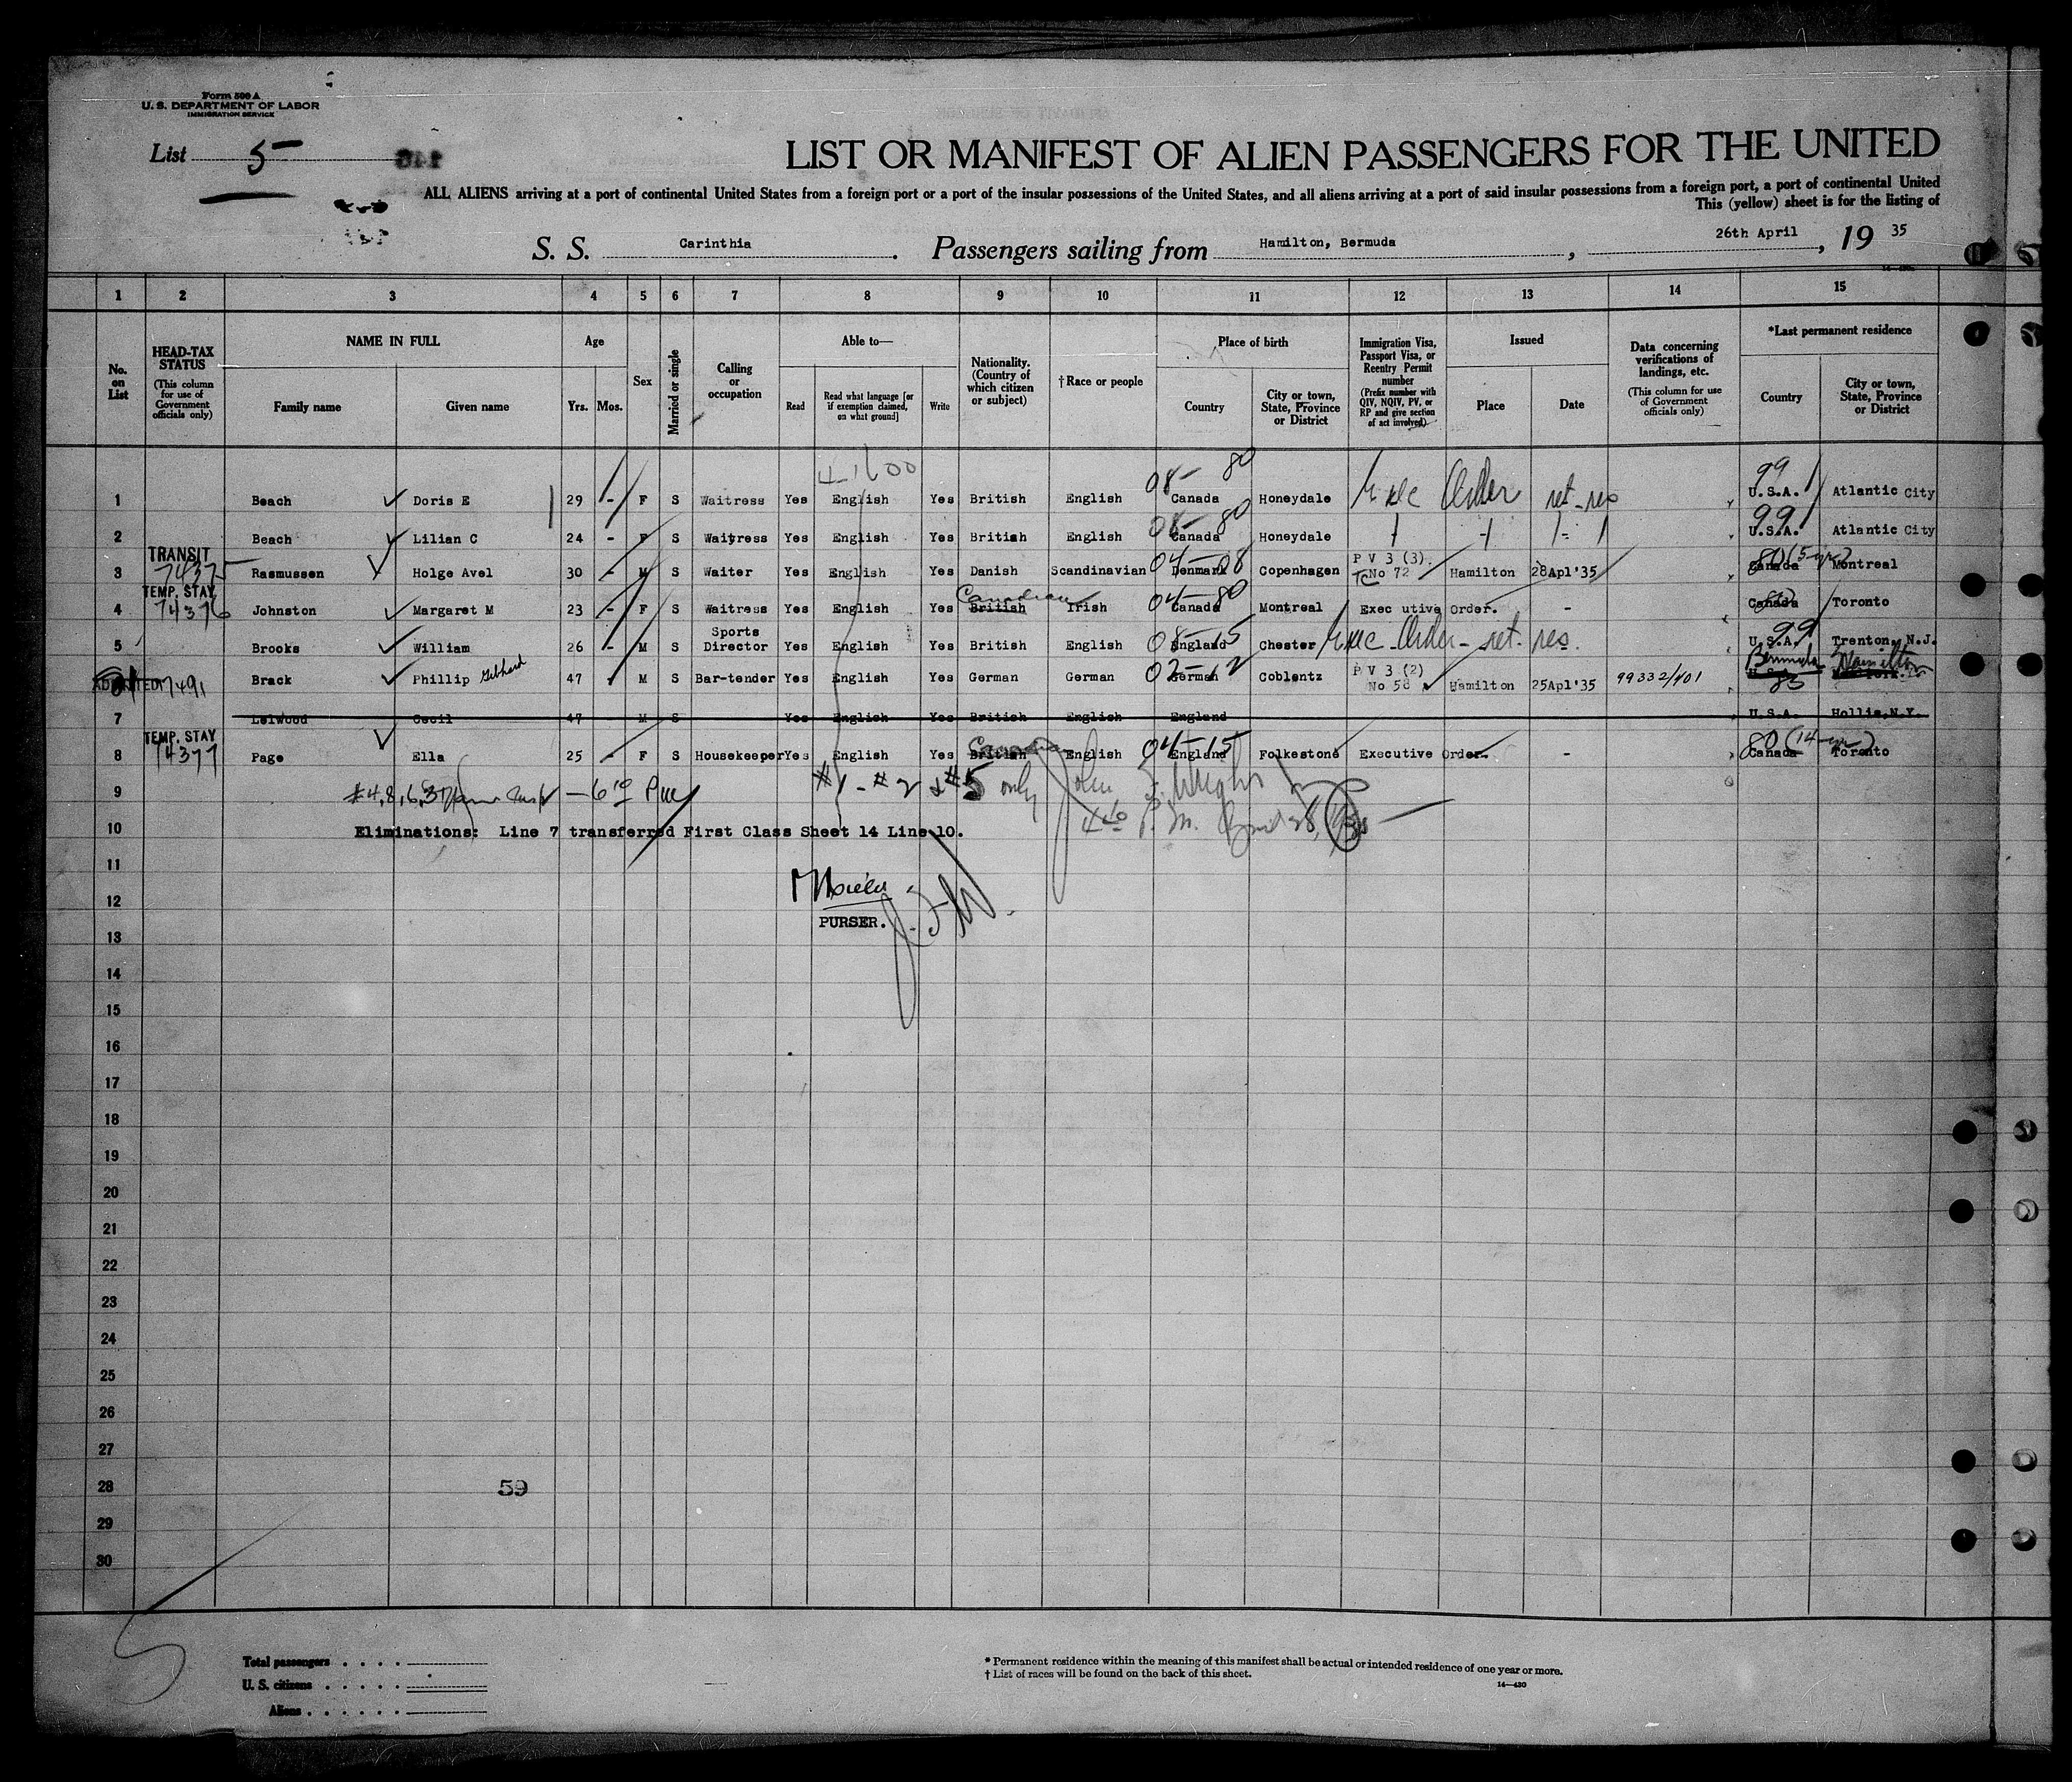 Form 500 A
U. S. DEPARTMENT OF LABOR
IMMIGRATION SERVICE
List 5
LIST OR MANIFEST OF ALIEN PASSENGERS FOR THE UNITED
ALL ALIENS arriving at a port of continental United States from a foreign port or a port of the insular possessions of the United States, and all aliens arriving at a port of said insular possessions from a foreign port, a port of continental United
This (yellow) sheet is for the listing of
S. S. Carinthia . Passengers sailing from Hamilton, Bermuda , 26th April , 19 35
1 2 3 4 5 6 7 8 9 10 11 12 13 14 15
No. on List
HEAD-TAX STATUS (This column for use of Government officials only)
NAME IN FULL
Family name Given name
Age
Yrs. Mos.
Sex
Married or single
Calling or occupation
Able to—
Read Read what language [or if exemption claimed, on what ground] Write
Nationality. (Country of which citizen or subject)
†Race or people
Place of birth
Country City or town, State, Province or District
Immigration Visa, Passport Visa, or Reentry Permit number (Prefix number with QIV, NQIV, PV, or RP and give section of act involved)
Issued
Place Date
Data concerning verifications of landings, etc. (This column for use of Government officials only)
*Last permanent residence
Country City or town, State, Province or District
08- 80 99
1 Beach Doris E 29 - F S Waitress Yes English Yes British English Canada Honeydale Exec Order ret-res U.S.A. Atlantic City
08- 80 99
2 Beach Lilian C 24 - F S Waitress Yes English Yes British English Canada Honeydale U.S.A. Atlantic City
TRANSIT 74375
3 Rasmussen Holge Avel 30 - M S Waiter Yes English Yes Danish Scandinavian 04-08 Denmark Copenhagen P V 3 (3). No 72 Hamilton 28Apl'35 80 (5-yr) Canada Montreal
TEMP. STAY 74376
4 Johnston Margaret M 23 - F S Waitress Yes English Yes Canadian British Irish 04-80 Canada Montreal Exec utive Order. - Canada Toronto
5 Brooks William 26 - M S Sports Director Yes English Yes British English 08-15 England Chester Exec Order - ret. res. 99 U.S.A. Trenton, N.J.
ADMITTED 7491
Brack Phillip Gebhard 47 M S Bar-tender Yes English Yes German German 02-12 German Coblentz P V 3 (2) No 58 Hamilton 25Apl'35 99332/401 Bermuda Hamilton U.S.A. 85
7 Lelwood Cecil 47 M S Yes English Yes British English England U.S.A. Hollis,N.Y.
TEMP. STAY 74377
8 Page Ella 25 - F S Housekeeper Yes English Yes Canadian British English 04-15 England Folkestone Executive Order. - 80 (14-yr) Canada Toronto
9 #4,8,6,3 #1-#2 & #5 only
10 Eliminations: Line 7 transferred First Class Sheet 14 Line 10.
11
12
PURSER.
13
14
15
16
17
18
19
20
21
22
23
24
25
26
27
28 59
29
30
Total passengers
U. S. citizens
Aliens
* Permanent residence within the meaning of this manifest shall be actual or intended residence of one year or more.
† List of races will be found on the back of this sheet.
14—430